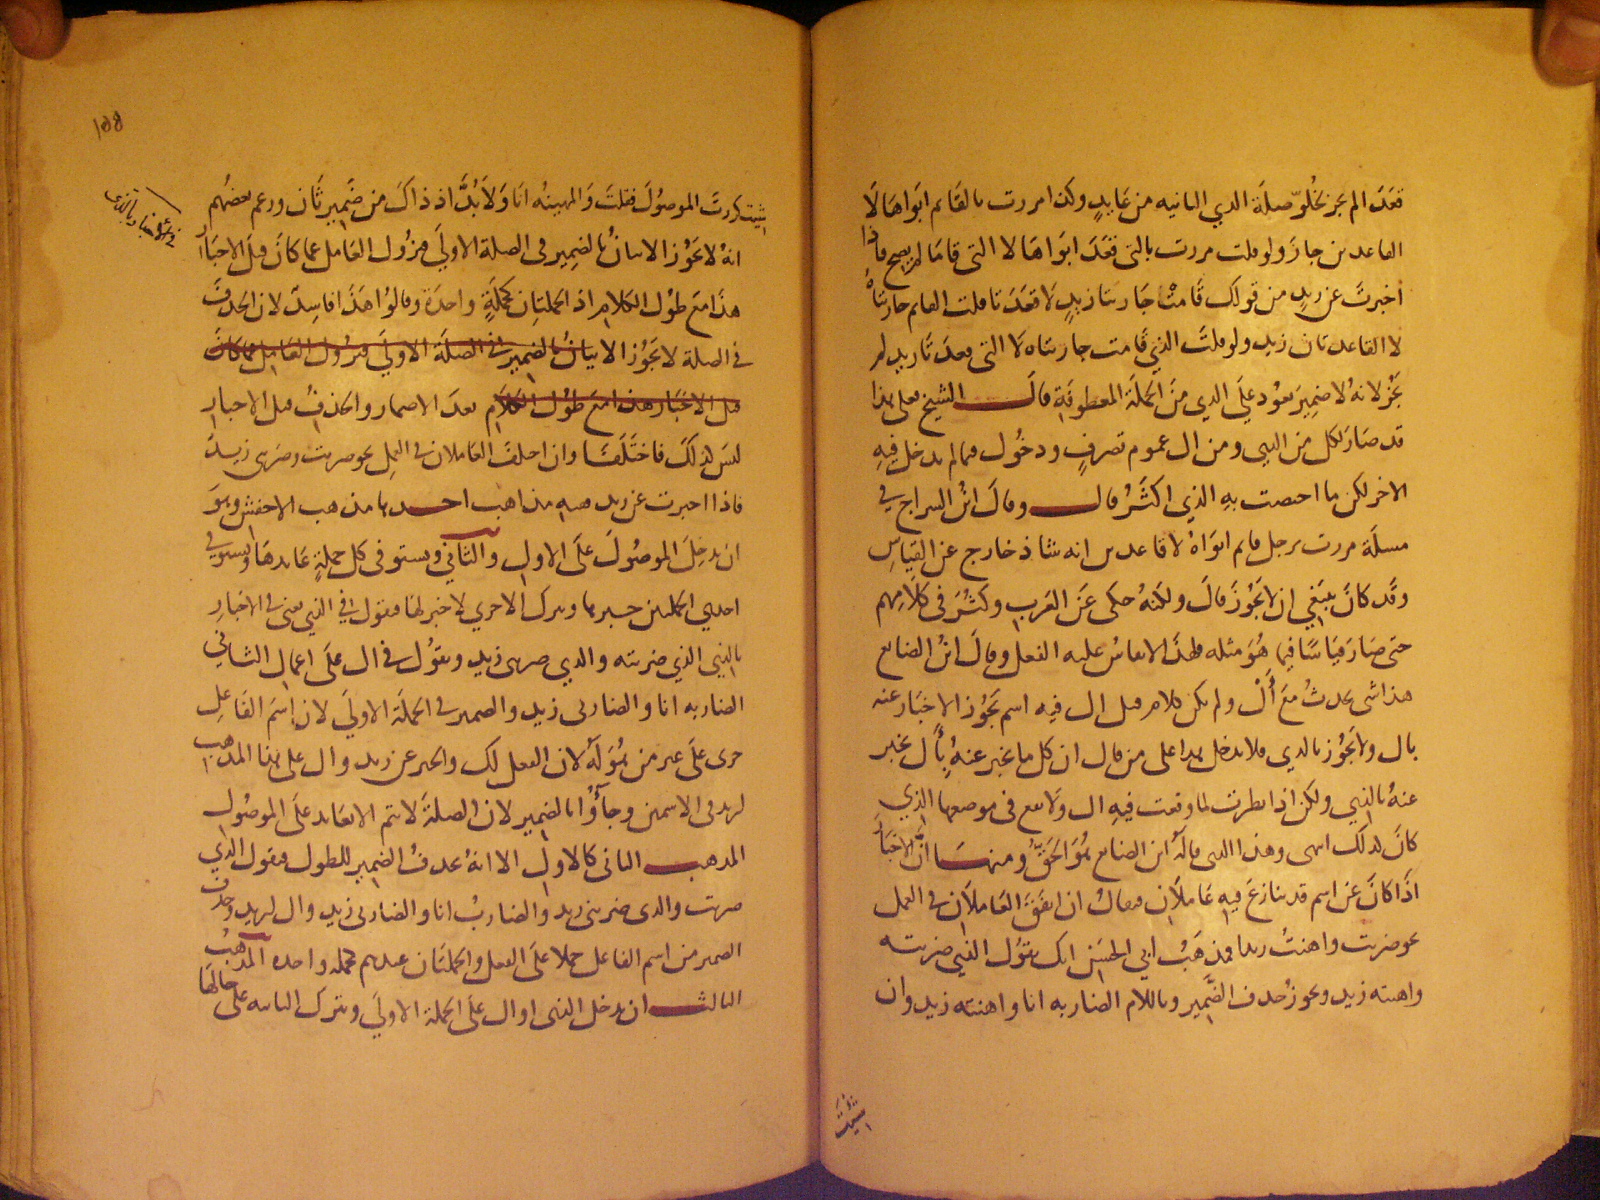 قعَدَ الم يجز لخلوّ صلَة الذي الثانيه من عَايدٍ وكذا مررت بالقَايم ابوَاهَا لَا
القاعدين جازَ ولو قلت مررت بالتي قعَدَ ابوَاهَا لا التي قامَا لم يصح فاذا
اخبرتَ عن زيدٍ من قولك قَامتْ جَاريتا زيدٍ لَا قعَدَتا قلت القايم جاريتاهُ
لا القاعدتان زيد ولو قلتَ الذي قَامت جاريتاه لَا التي قعدَتَا زيد لم
يَجُز لانهُ لا ضمِيرَ يعُود علَى الذي منَ الجملَة المعطوفَةِ قالَ الشيخ فعلى هذا
قد صَارَ لكل من الذي ومن ال عموم تصرفٍ ودخُول فيما لم يدخل فيهِ
الاخر لكن ما اختصت بهِ الذي اكثَرُ قال وقالَ ابنُ السراج في
مسلَة مررت برجل قايم ابوَاهُ لا قاعدين انه شاذ خارج عن القيَاسِ
وقَد كانَ ينبَغِي ان لا يَجُوزَ قالَ ولكنهُ حكى عَنَ العَربِ وكثُرَ في كلَامِهم
حتى صَارَ قيَاسًا فيما هُوَ مثله فلهذا لا يقاسُ عليه الفعل وقالَ ابنُ الضايع
هذا شي يحدثُ معَ أَلْ ولم يكن كلام قبل ال فيه اسم يَجُوز الاخبَار عنه
بال ولا يَجُوز بالذي فلا يدخل هذا على من قال ان كل ما يخبر عنهُ بأل يخبر
عنهُ بالذي ولكن اذا نظرت لما وقعت فيهِ ال ولا يقع في موضعها الذي
كانَ لذلك انتهى وهذا الذي قالهُ ابن الضايع هُوَ الحَقُّ ومنهَا انَّ الاخبَارَ
اذَا كانَ عَن اسم قد تنازعَ فيهِ عَاملَانِ فيقالُ ان اتفقَ العَاملَانِ في العمل
نحو ضربت واهنتُ زيدا فمذهَبُ ابي الحسَن انك تقوُل الذي ضربته
واهنته زيد ويجوزُ حذف الضَّمِير وباللام الضاربه انا واهنته زيد وان
اثبَتَّ
١٥٥
في الاخبار بالذي
اثبت كررتَ الموصُولَ فقلتَ وَالمهينُه انَا وَلَا بُدَّ اذ ذاكَ من ضَمِيرٍ ثَانٍ وزعم بعضُهم
انهُ لا يَجُوز الاتيانُ بالضمِير في الصلة الاولَى فيزُول العَامل عما كانَ قبلَ الاخبَار
هذا معَ طوُل الكلامِ اذ الجملتان كجملَةٍ واحدَة وقالوُا هَذا فاسِدٌ لان الحذفَ
في الصلة لا يَجُوز الاتيانُ بالضمير في الصلَة الاولَى فيزُول العَامل عما كانَ
قبل الاخبَار هذا معَ طوُل الكلَام بعدَ الاضمار والحذفُ قبل الاخبار
ليسَ كذلكَ فاختَلَفَا وان اختلفَ العَاملان في العمل نحو ضربت وضربني زيدٌ
فاذا اخبرت عن زيد ففيه مذاهب احدها مذهب الاخفش وهوَ
ان يدخِلَ الموصُولَ علَى الاول والثاني ويستوفى كل جملةٍ عَايدهَا ويستوفي
احدى الجملتين خبرها وتترك الاخري لا خبر لهَا فيقول في الذي
بالذي الذي ضربته والذي ضربني زيد وتقوُل في ال علَى اعمال الثاني
الضاربه انا والضاربي زيد والضمير في الجملَة الاولَى لان اسمَ الفَاعل
جرى علَى غير من هُوَ لَهُ لان الفعل لك والخبر عن زيد وال على هذا المذهب
لزيد في الاسمين وجَاؤُا بالضمير لان الصلةَ لا تتم الا بعَايد علَى الموصُول
المذهب الثانى كالاول الا انهُ يحذفُ الضمير للطول فيقول الذي
ضربت والذى ضربني زيد والضاربُ انا والضاربي زيد وال لزيد وحذف
الضمير من اسم الفاعل حملا علَى الفعل والجملتَان عندهم كجملة واحدة المذهبُ
الثالث ان يدخل الذي او ال علَى الجملة الاولَى وتترك الثانيه على حَالهَا